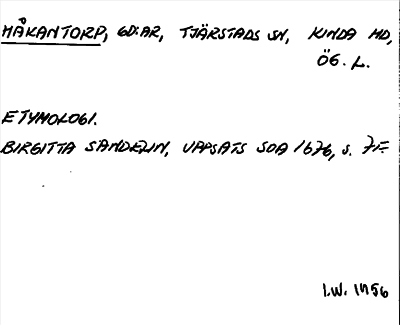 HÅKANTORP, GD:AR, TJÄRSTADS SN, KINDA HD,
ÖG. L.
ETYMOLOGI.
BIRGITTA SANDELIN, UPPSATS SOA 1676, s. 7F.
I.W. 1956